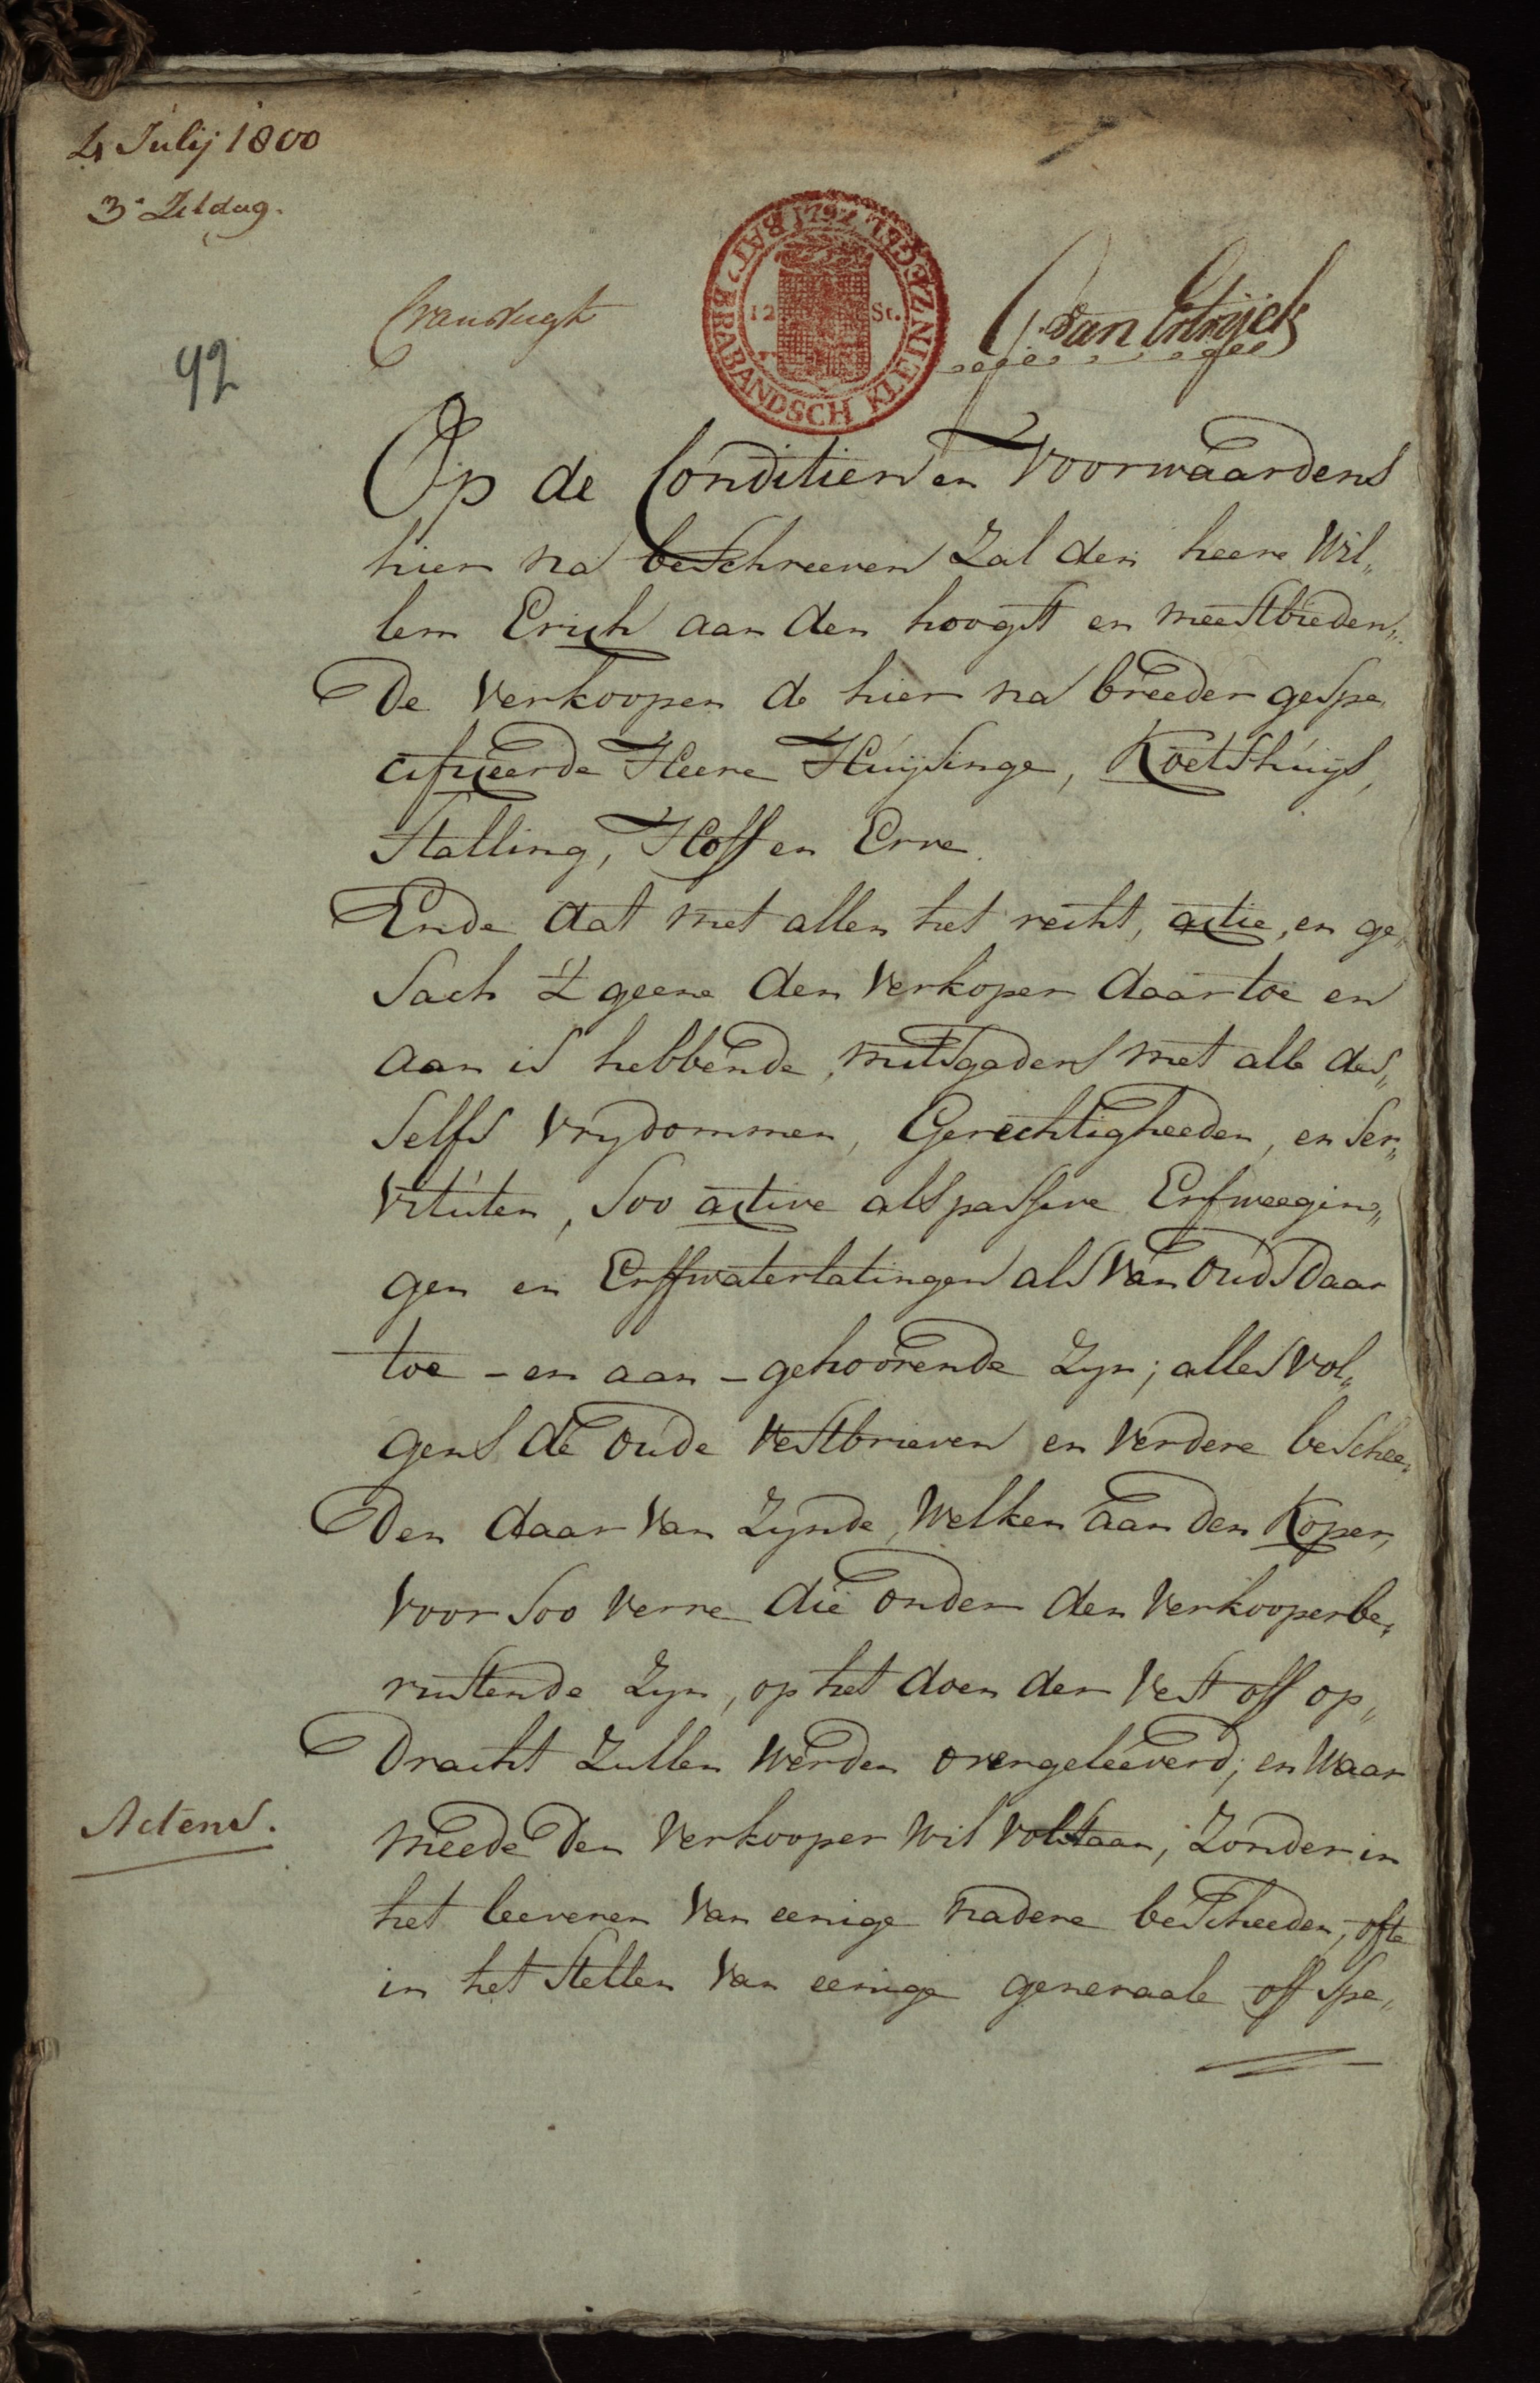 4 Julij 1800
3e Zitdag.
92
BAT. BRABANDSCH KLEINZEGEL 1797
12 St.
Op de Conditien en Voorwaardens
hier na beschreeven Zal den heere Wil„
lem Erich aan den hoogst en meestbieden„
De Verkoopen de hier na breeder gespe„
cifieerde Heere Huijsinge, Koetshuijs,
Stalling, Hoff en Erve.
Ende dat met allen het recht, actie, en ge„
sach 't geene den Verkoper daar toe en
aan is hebbende, mitsgaders met alle des„
selfs Vrydommen, Gerechtigheeden, en Ser„
vituten, soo active als passive Erfweegin„
gen en Erffwaterlatingen als van ouds daar
toe - en aan - gehoorende Zyn; alles vol„
gens de oude Vestbrieven en Verdere beschee„
den daar van Zynde, Welken aan den Koper,
voor soo verre die onder den Verkooper be„
rustende Zyn, op het doen der Vest off op„
dracht Zullen werden overgeleeverd; en Waar
Actens.
meede den Verkooper wil volstaan, Zonder in
het leeveren van eenige nadere bescheeden, ofte
in het stellen van eenige generaale off spe„